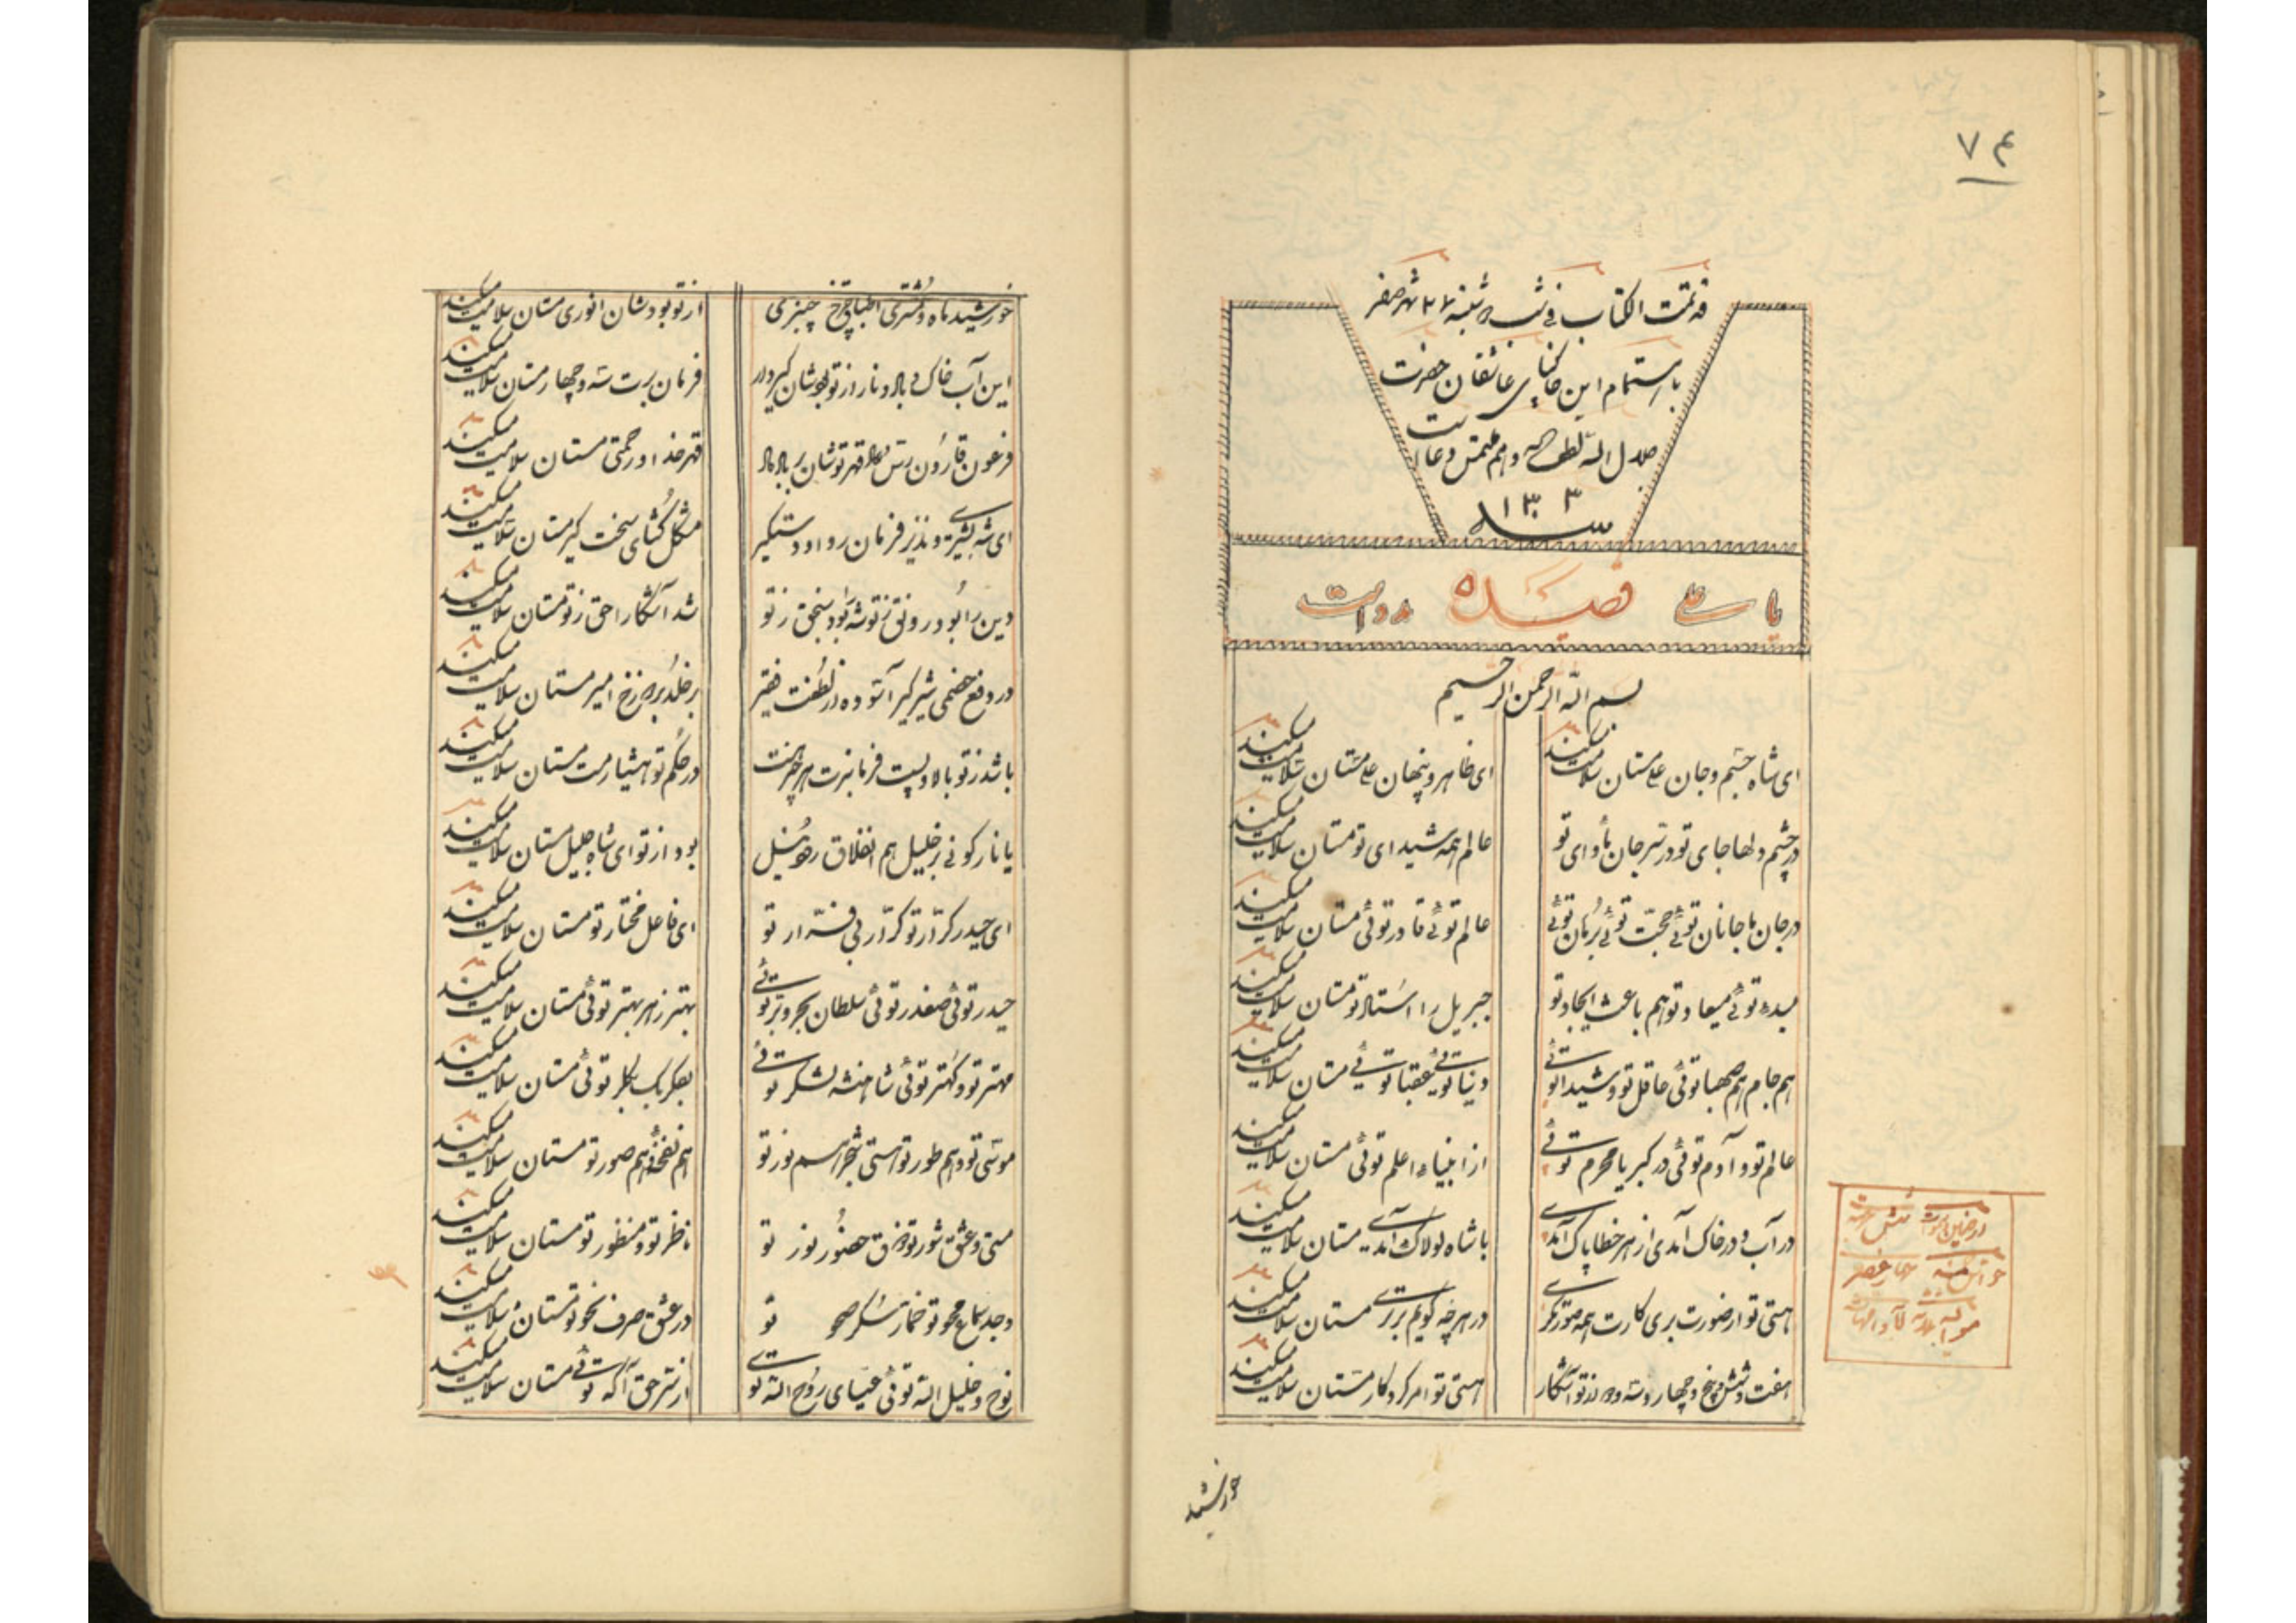 ۷۴
قد تمت الکتاب فی شب شنبه ۲۷ شهر صفر
باستمام این خاکپای عاشقان حضرت
جلال الله لطف اله و هم ملتمس دعا است
سنه ۱۳۰۳
یا علی قصیده مدد است
بسم الله الرحمن الرحیم
ای شاه جسم و جان علی مستان سلامت میکنند ای ظاهر و پنهان علی مستان سلامت میکنند
در چشم دلها جای تو در سر جان مأوای تو عالم همه شیدای تو مستان سلامت میکنند
در جان ها جانان توئی حجت توئی برهان توئی عالم توئی قادر توئی مستان سلامت میکنند
مبدء توئی میعاد تو هم باعث ایجاد تو جبریل را استاد تو مستان سلامت میکنند
هم جام هم صهبا توئی عاقل تو و شیدا توئی دنیا توئی عقبا توئی مستان سلامت میکنند
عالم تو و آدم توئی در کبریا محرم توئی از انبیاء اعلم توئی مستان سلامت میکنند
در آب و در خاک آمدی از هر خطا پاک آمدی با شاه لولاک آمدی مستان سلامت میکنند
هستی تو از صورت بری کارت همه صورتگری در هر چه گویم برتری مستان سلامت میکنند
هفت و شش و پنج و چهار و سه و دو از تو آشکار هستی تو امر کردگار مستان سلامت میکنند
خورشید
خورشید ماه و مشتری اطباق چرخ چنبری از تو بود شان انوری مستان سلامت میکنند
این آب خاک باد و نار از تو بود شان گیر و دار فرمان برت سه و چهار مستان سلامت میکنند
فرعون قارون قهر تو شان قهر خدا و رحمتی مستان سلامت میکنند
ای شه بشیری و نذیر فرمان روا و دستگیر مشکل گشای سخت گیر مستان سلامت میکنند
دین را بود رونق ز تو شه بود ز تو شد آشکارا حق ز تو مستان سلامت میکنند
در دفع خصمی شیر گیر لطفت فقیر بر خلد بر دوزخ امیر مستان سلامت میکنند
باشد ز تو بالا و پست فرمانبرت هر چیز هست در حکم تو هشیار مست مستان سلامت میکنند
یا نار کونی بر خلیل هم انفلاق رود نیل بود از تو ای شاه جلیل مستان سلامت میکنند
ای حیدر کرار تو کرار بی فرار تو ای فاعل مختار تو مستان سلامت میکنند
حیدر توئی صفدر توئی سلطان بحر و بر توئی بهتر ز هر بهتر توئی مستان سلامت میکنند
مهتر تو و کهتر توئی شاهنشه لشکر توئی توئی مستان سلامت میکنند
موسی تو و هم طور تو استی شجر هم نور تو هم نفخه و هم صور تو مستان سلامت میکنند
مستی و عشق شور تو ذوق حضور نور تو ناظر تو و منظور تو مستان سلامت میکنند
وجد سماع محو تو خمار سکر صحو تو در عشق صرف نحو تو مستان سلامت میکنند
نوح و خلیل الله توئی عیسای روح الله توئی از سر حق آگه توئی مستان سلامت میکنند